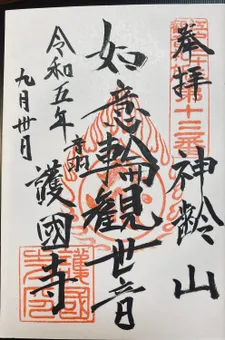 奉拝
第十三番
神齢山
如意輪観世音
護國寺
令和五年
九月廿日